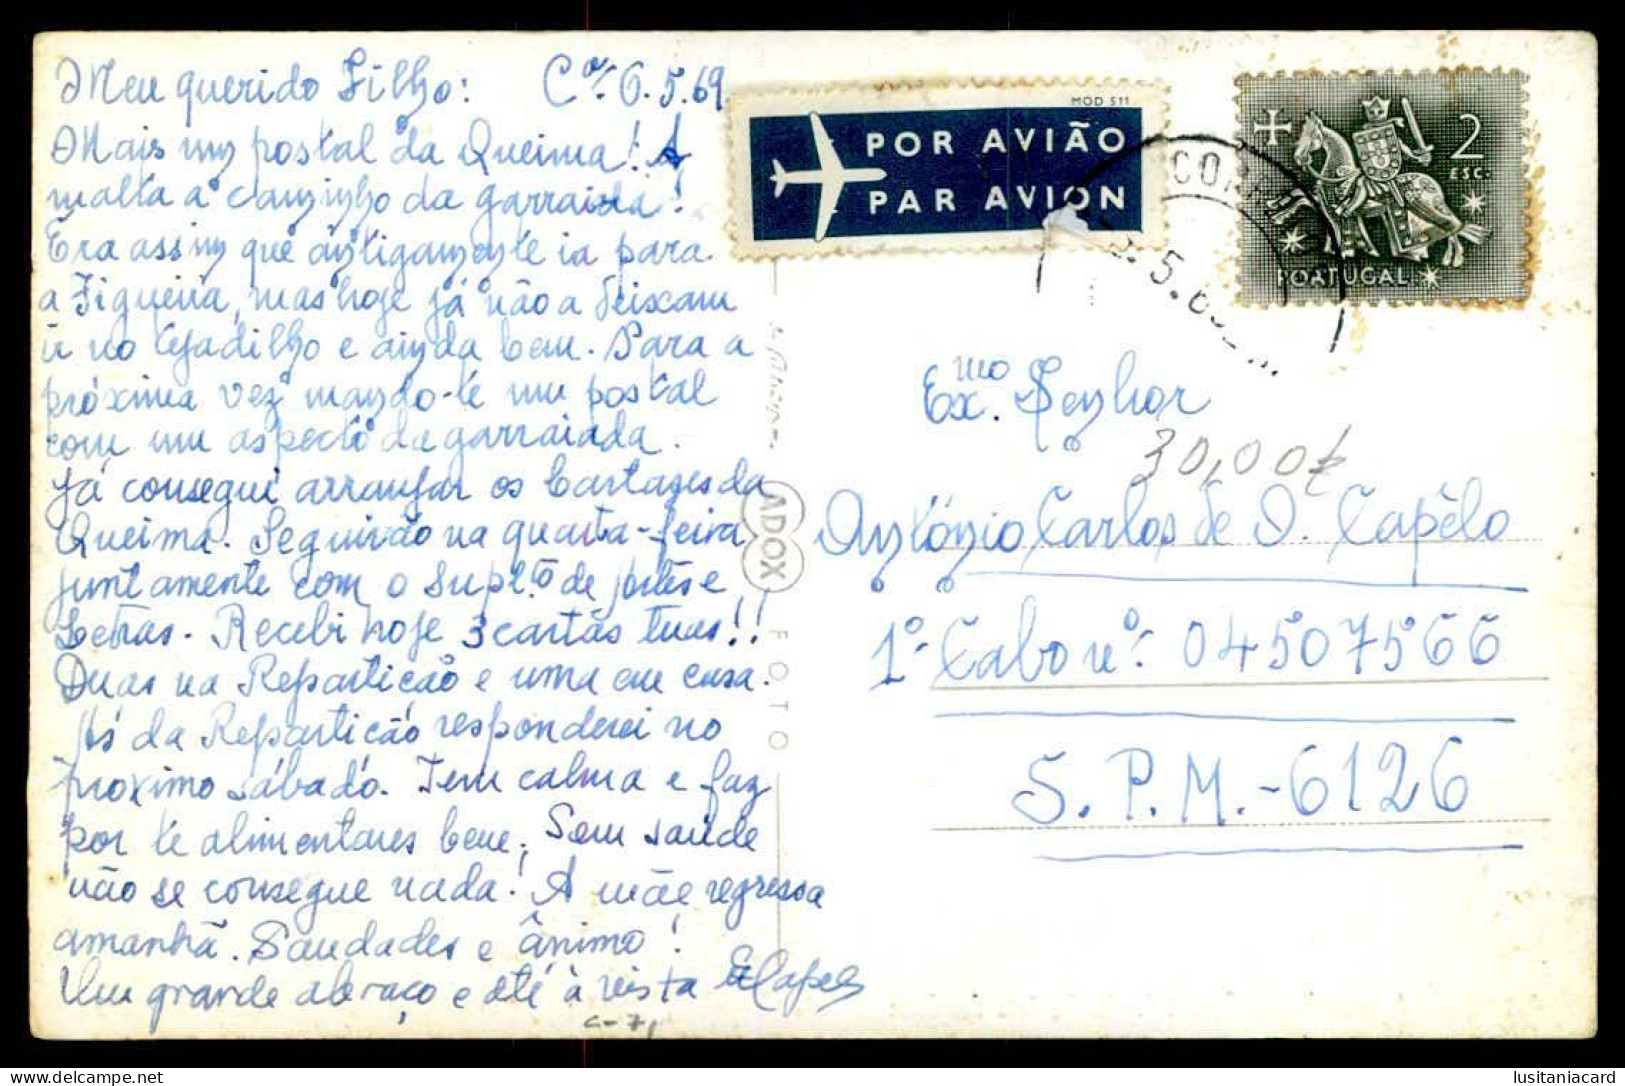 Meu querido Filho: C.ª 6.5.69
Mais um postal da Queima! A
malta a caminho da garraiada!
Era assim que antigamente ia para
a Figueira, mas hoje já não a deixam
ir no Gadilho e ainda bem. Para a
próxima vez mando-te um postal
com um aspecto da garraiada.
Já consegui arranjar os Cartazes da
Queima. Seguirão na quarta-feira
juntamente com o Supl.to de Artes e
Letras. Recebi hoje 3 cartas tuas!!
Duas na Repartição e uma em casa.
Às da Repartição responderei no
próximo sábado. Tem calma e faz
por te alimentares bem; Sem saúde
não se consegue nada! A mãe regressa
amanhã. Saudades e ânimo!
Um grande abraço e até à vista
C-71
MOD 511
POR AVIÃO
PAR AVION
2
ESC.
PORTUGAL
ADOX
FOTO
Ex.mo Senhor
30,00€
António Carlos de O. Capêlo
1º Cabo nº: 04507566
S.P.M.-6126
lusitaniacard